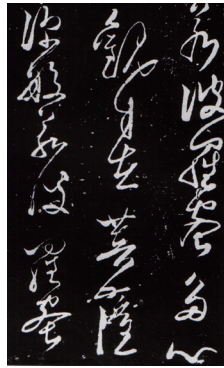 若波羅蜜多心
觀自在菩薩
深般若波羅蜜